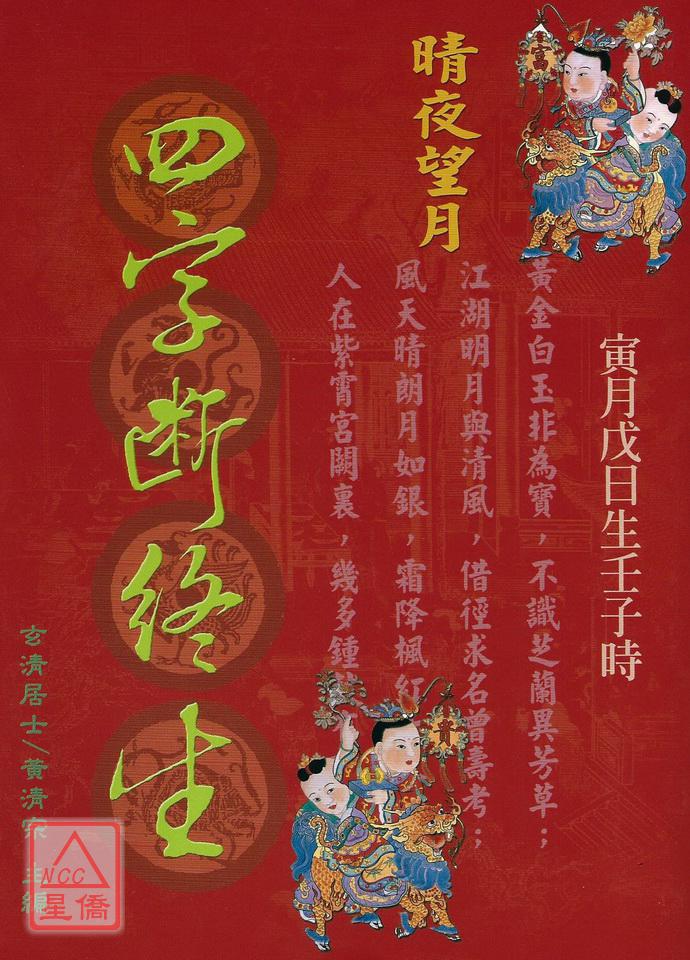 富
晴夜望月
寅月戊日生壬子時
黃金白玉非為寶，不識芝蘭異芳草；
江湖明月與清風，借徑求名曾壽考；
風天晴朗月如銀，霜降楓紅
人在紫霄宮闕裏，幾多鍾
四字断终生
玄清居士／黃清
主編
貴
NCC
星僑